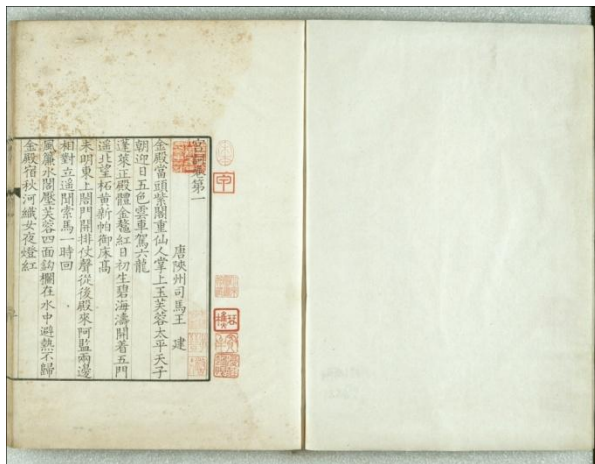 宮詞卷第一
唐陝州司馬王 建
金殿當頭紫閣重仙人掌上玉芙蓉太平天子
朝迎日五色雲車駕六龍
蓬萊正殿體金鼇紅日初生碧海濤開着五門
遥北望柘黄新帕御床高
未明東上閤門開排仗聲從後殿來阿監兩邊
相對立遥聞索馬一時回
風簾水閣壓芙蓉四面鈎欄在水中避熱不歸
金殿宿秋河織女夜燈紅